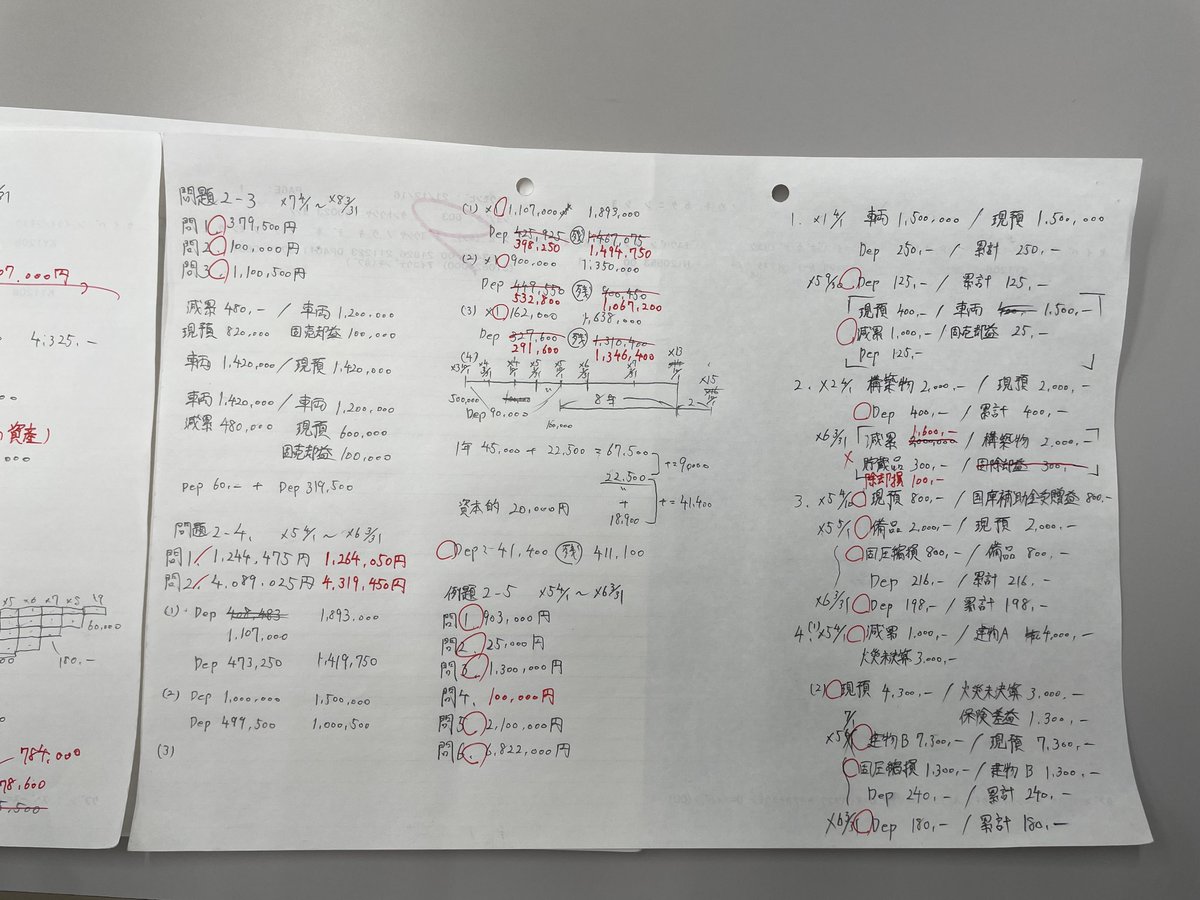 07.000円
4.325.-
資産)
000
×5 ×6 ×7 ×8 19
60,000
180.-
784.000
78.600
5,500
問題2-3 ×7 4/1~×8 3/31
問1. 379,500円
問2. 100,000円
問3. 1,100,500円
減累 480,- / 車両 1,200,000
現預 820,000 固売却益 100,000
車両 1,420,000 / 現預 1,420,000
車両 1,420,000 / 車両 1,200,000
減累 480,000 現預 600,000
固売却益 100,000
Dep 60,- + Dep 319,500
問題2-4. ×5 4/1 ~ ×6 3/31
問1. 1,244,475円 1,264,050円
問2. 4,089,025円 4,319,450円
(1) Dep 408,483 1,893,000
1,107,000
Dep 473,250 1,419,750
(2) Dep 1,000,000 1,500,000
Dep 499,500 1,000,500
(3)
(1) × 1,107,000 1,893,000
Dep 425,925 残 1,467,075
398,250 1,494,750
(2) × 900,000 1,350,000
Dep 449,550 残 900,450
532,800 1,067,200
(3) × 162,000 1,638,000
Dep 327,600 残 1,310,400
291,600 1,346,400
(4)
×13
×15
500,000
8年
2
Dep 90,000
100,000
1年 45,000 + 22,500 = 67,500
+=90000
22,500
資本的 20,000円
+
18,900
+=41,400
Dep=41,400 残 411,100
例題2-5 ×5 4/1~×6 3/31
問1. 903,000円
問2. 25,000円
問3. 1,300,000円
問4. 100,000円
問5. 2,100,000円
問6. 6,822,000円
1. ×1 4/1 車両 1,500,000 / 現預 1,500,000
Dep 250,- / 累計 250,-
×5 9/30 Dep 125,- / 累計 125,-
現預 400,- / 車両 1,500,-
減累 1,000,- / 固売却益 25,-
Dep 125,-
2. ×2 4/1 構築物 2,000,- / 現預 2,000,-
Dep 400,- / 累計 400,-
×6 3/31 減累 1,600,- / 構築物 2,000,-
× 貯蔵品 300,- / 固除却益 300,-
除却損 100,-
3. ×5 4/ 現預 800,- / 国庫補助金受贈益 800,-
×5 5/1 備品 2,000,- / 現預 2,000,-
固圧縮損 800,- / 備品 800,-
Dep 216,- / 累計 216,-
×6 3/31 Dep 198,- / 累計 198,-
4. (1) ×5 4/1 減累 1,000,- / 建物A 4,000,-
火災未決算 3,000,-
(2) 現預 4,300,- / 火災未決算 3,000,-
保険差益 1,300,-
×5 7/1 建物B 7,300,- / 現預 7,300,-
固圧縮損 1,300,- / 建物B 1,300,-
Dep 240,- / 累計 240,-
×6 3/31 Dep 180,- / 累計 180,-